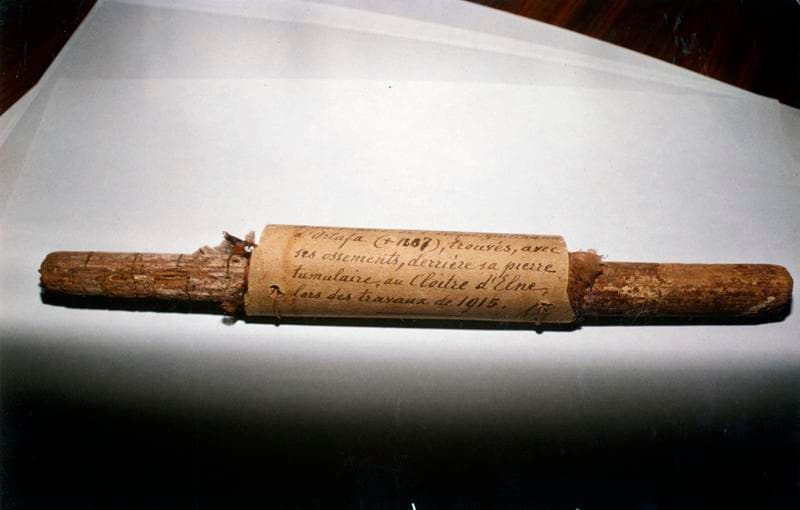 d'Ortafa (+ 1207), trouvés, avec
ses ossements, derrière sa pierre
tumulaire, au Cloitre d'Elne,
lors des travaux de 1915.